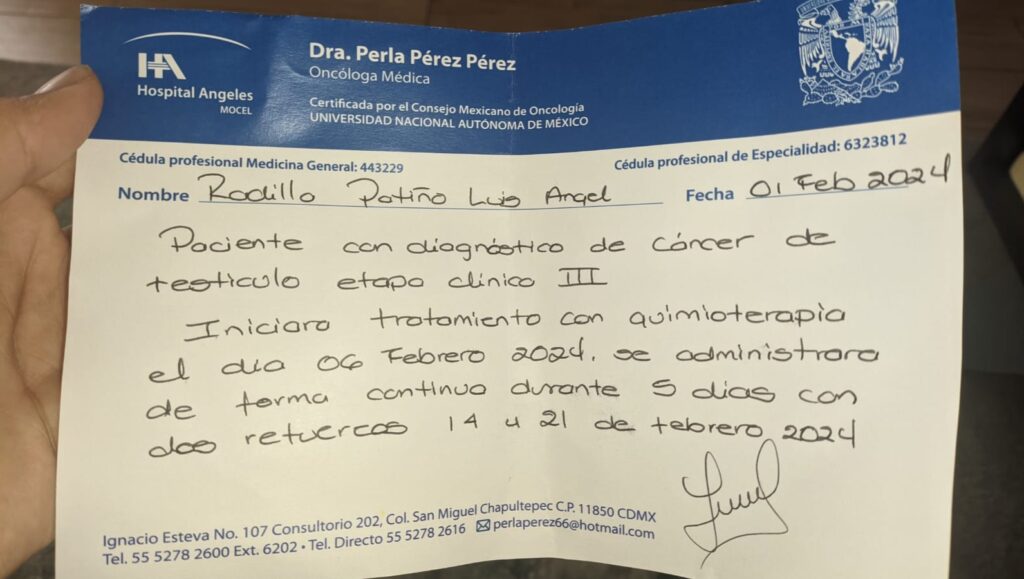 HA
Hospital Angeles
MOCEL
Dra. Perla Pérez Pérez
Oncóloga Médica
Certificada por el Consejo Mexicano de Oncología
UNIVERSIDAD NACIONAL AUTÓNOMA DE MÉXICO
Cédula profesional Medicina General: 443229
Cédula profesional de Especialidad: 6323812
Nombre Radillo Patiño Luis Angel Fecha 01 Feb 2024
Paciente con diagnóstico de cáncer de
testiculo etapa clínico III
Iniciara tratamiento con quimioterapia
el día 06 Febrero 2024. se administrara
de forma continua durante 5 dias con
dos refuerzos 14 y 21 de febrero 2024
Ignacio Esteva No. 107 Consultorio 202, Col. San Miguel Chapultepec C.P. 11850 CDMX
Tel. 55 5278 2600 Ext. 6202 • Tel. Directo 55 5278 2616 perlaperez66@hotmail.com